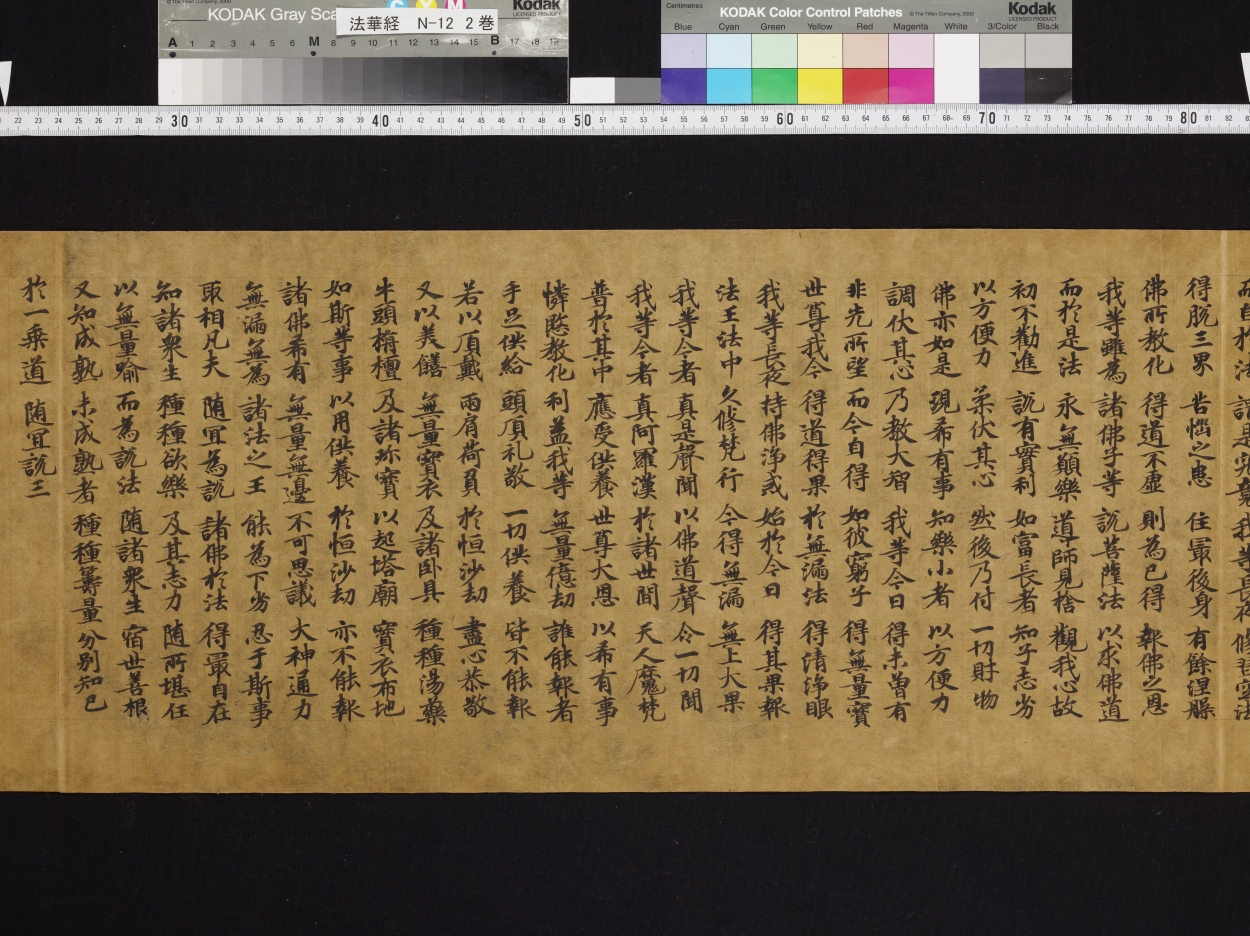 © The Tiffen Company, 2000
KODAK Gray Sca
C Y M
Kodak
LICENSED PRODUCT
法華経 N-12 2巻
A 1 2 3 4 5 6 M 8 9 10 11 12 13 14 15 B 17 18 19
Centimetres
KODAK Color Control Patches
© The Tiffen Company, 2000
Kodak
LICENSED PRODUCT
Blue Cyan Green Yellow Red Magenta White 3/Color Black
22 23 24 25 26 27 28 29 30 31 32 33 34 35 36 37 38 39 40 41 42 43 44 45 46 47 48 49 50 51 52 53 54 55 56 57 58 59 60 61 62 63 64 65 66 67 68 69 70 71 72 73 74 75 76 77 78 79 80 81 82
得脱三界 苦惱之患 住最後身 有餘涅槃
佛所教化 得道不虛 則為已得 報佛之恩
我等雖為 諸佛子等 說菩薩法 以求佛道
而於是法 永無願樂 導師見捨 觀我心故
初不勸進 說有實利 如富長者 知子志劣
以方便力 柔伏其心 然後乃付 一切財物
佛亦如是 現希有事 知樂小者 以方便力
調伏其心 乃教大智 我等今日 得未曾有
非先所望 而今自得 如彼窮子 得無量寶
世尊我今 得道得果 於無漏法 得清浄眼
我等長夜 持佛浄戒 始於今日 得其果報
法王法中 久修梵行 今得無漏 無上大果
我等今者 真是聲聞 以佛道聲 令一切聞
我等今者 真阿羅漢 於諸世間 天人魔梵
普於其中 應受供養 世尊大恩 以希有事
憐愍教化 利益我等 無量億劫 誰能報者
手足供給 頭頂礼敬 一切供養 皆不能報
若以頂戴 兩肩荷負 於恒沙劫 盡心恭敬
又以美饍 無量寶衣 及諸卧具 種種湯藥
牛頭栴檀 及諸珎寶 以起塔廟 寶衣布地
如斯等事 以用供養 於恒沙劫 亦不能報
諸佛希有 無量無邊 不可思議 大神通力
無漏無為 諸法之王 能為下劣 忍于斯事
取相凡夫 随宜為說 諸佛於法 得最自在
知諸衆生 種種欲樂 及其志力 随所堪任
以無量喻 而為說法 随諸衆生 宿世善根
又知成熟 未成熟者 種種籌量 分別知已
於一乗道 随宜說三